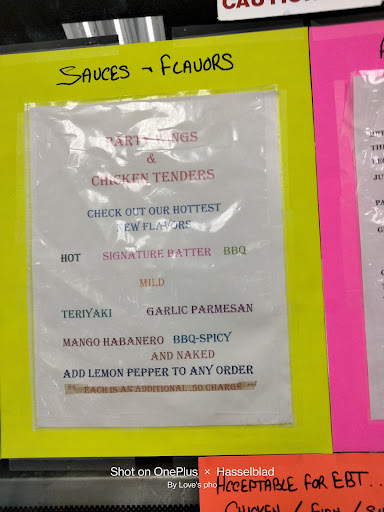 CAUTION
SAUCES & FLAVORS
PARTY WINGS
&
CHICKEN TENDERS
CHECK OUT OUR HOTTEST
NEW FLAVORS
HOT SIGNATURE BATTER BBQ
MILD
TERIYAKI GARLIC PARMESAN
MANGO HABANERO BBQ-SPICY
AND NAKED
ADD LEMON PEPPER TO ANY ORDER
** EACH IS AN ADDITIONAL .50 CHARGE **
ACCEPTABLE FOR EBT..
CHICKEN / FISH /
Shot on OnePlus × Hasselblad
By Love's pho